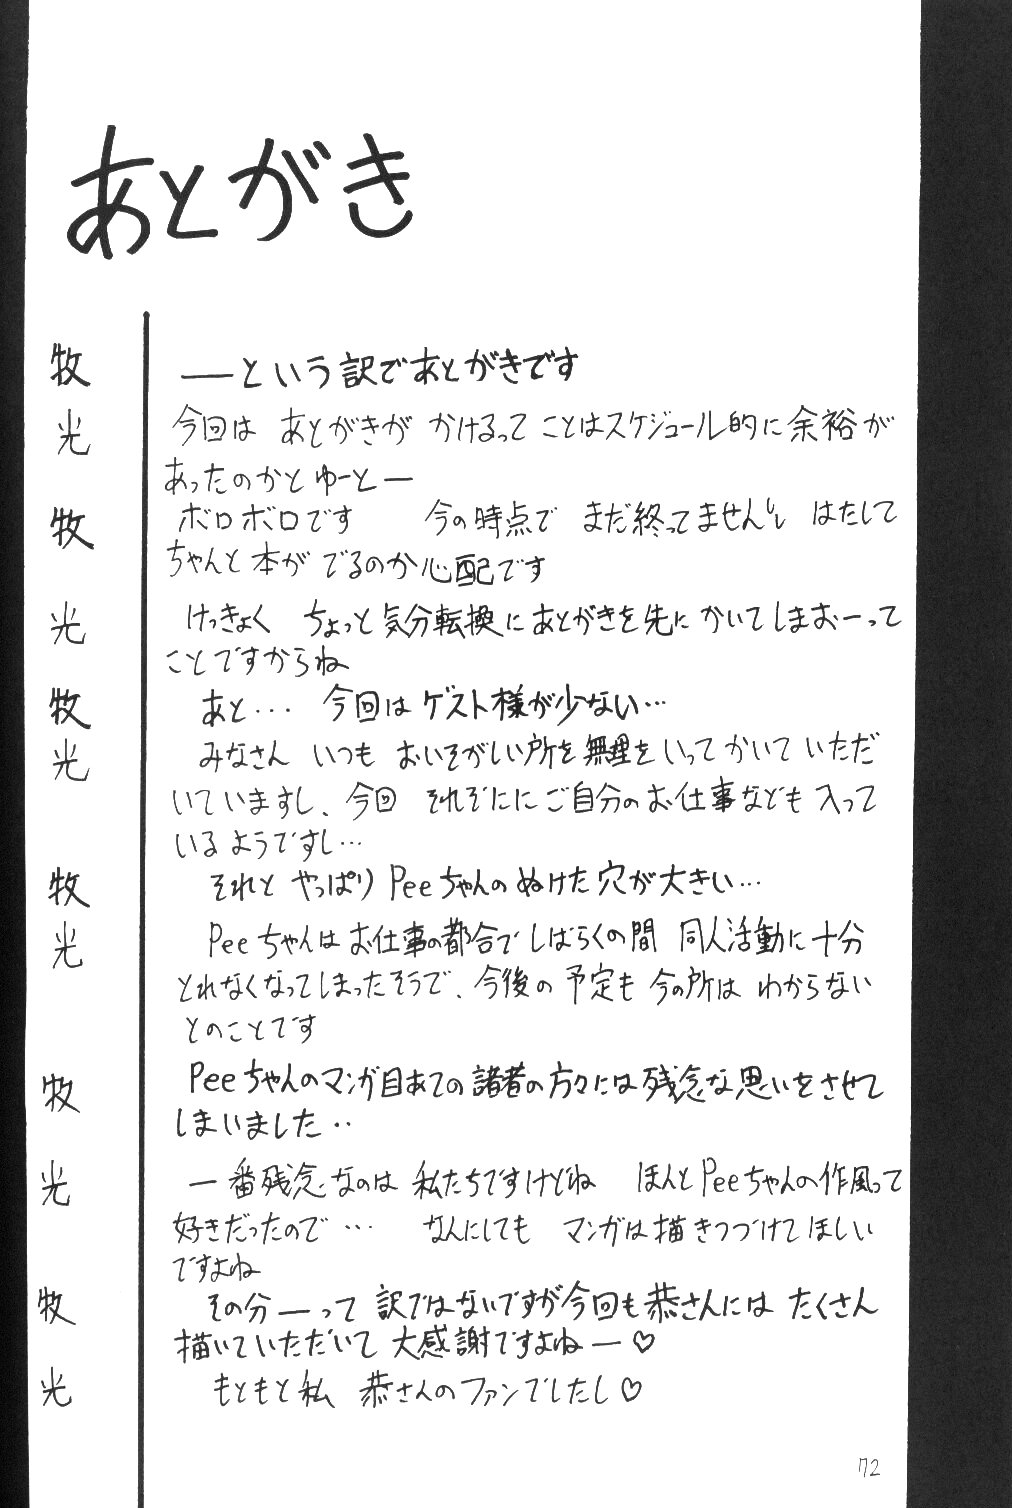 あとがき
牧 ──という訳であとがきです
光 今回は あとがきが かけるって ことはスケジュール的に余裕が
あったのかと ゆーとー
牧 ボロボロです 今の時点で まだ終ってませんし はたして
ちゃんと本が でるのか心配です
光 けっきょく ちょっと気分転換にあとがきを先に かいてしまおーって
ことですからね
牧 あと... 今回はゲスト様が少ない...
光 みなさん いつも おいそがしい所を無理をいってかいていただ
いていますし、今回 それぞれにご自分のお仕事なども入って
いるようですし...
牧 それと やっぱり Peeちゃんのぬけた穴が大きい...
光 Peeちゃんはお仕事の都合でしばらくの間 同人活動に十分
とれなくなってしまったそうで、今後の予定も今の所は わからない
とのことです
牧 Peeちゃんのマンガ目あての諸者の方々には残念な思いをさせて
しまいました‥
光 一番残念なのは 私たちですけどね ほんとPeeちゃんの作風って
好きだったので... なんにしても マンガは描きつづけてほしい
ですよね
牧 その分──って 訳ではないですが今回も恭さんには たくさん
描いていただいて 大感謝ですよねー♡
光 もともと私 恭さんのファンでしたし♡
72